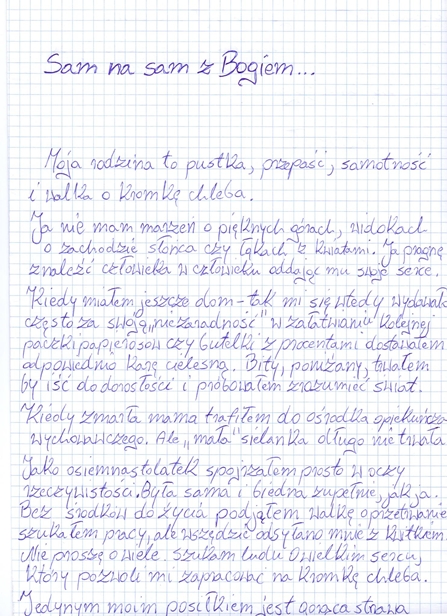 Sam na sam z Bogiem...
Moja rodzina to pustka, przepaść, samotność
i walka o kromkę chleba.
Ja nie mam marzeń o pięknych górach, widokach
o zachodzie słońca czy łąkach z kwiatami. Ja pragnę
znaleźć człowieka w człowieku oddając mu swoje serce.
Kiedy miałem jeszcze dom - tak mi się wtedy wydawało
często za swoją „niezaradność" w załatwianiu kolejnej
paczki papierosów czy butelki z procentami dostawałem
odpowiednio karę cielesną. Bity, poniżany, trwałem
by iść do dorosłości i próbowałem zrozumieć świat.
Kiedy zmarła mama trafiłem do ośrodka opiekuńczo
wychowawczego. Ale „mała" sielanka długo nie trwała
Jako osiemnastolatek spojrzałem prosto w oczy
rzeczywistości. Była sama i biedna zupełnie, jak ja.
Bez środków do życia podjąłem walkę o przetrwanie
szukałem pracy, ale wszędzie odsyłano mnie z kwitkiem.
Nie proszę o wiele. Szukam ludu o wielkim sercu,
który pozwoli mi zapracować na kromkę chleba.
Jedynym moim posiłkiem jest gorąca strawa